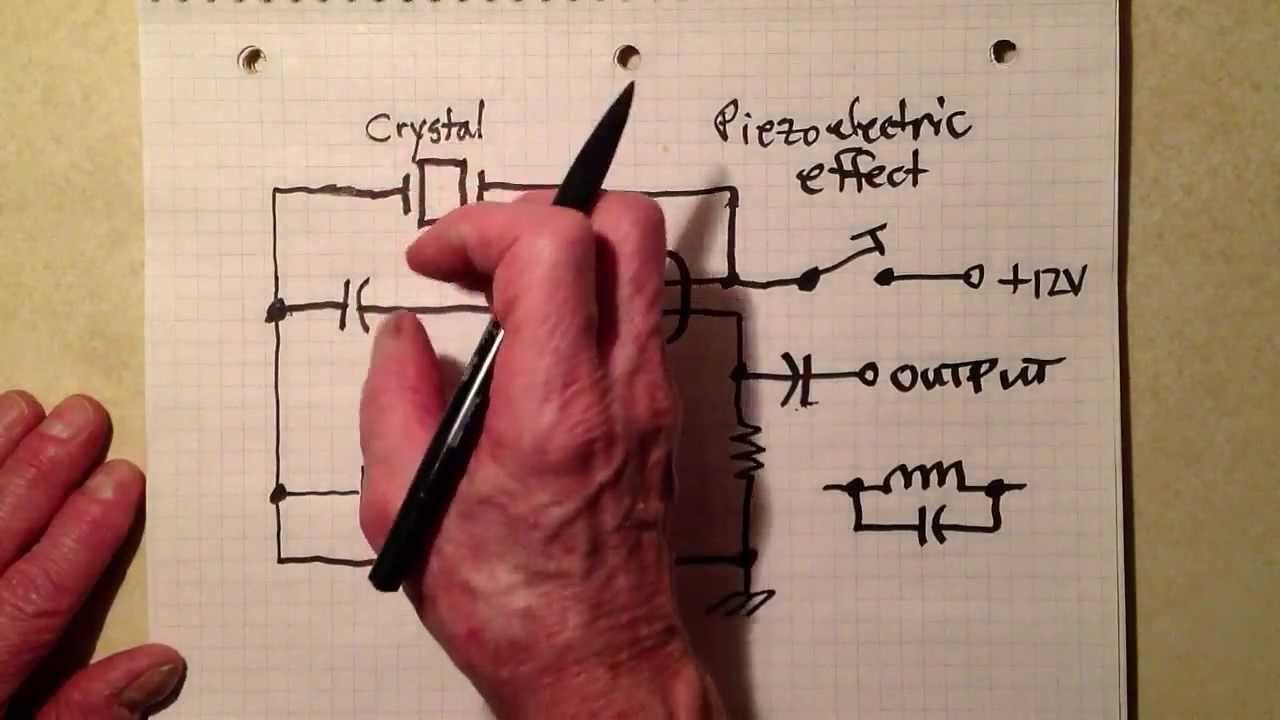 Crystal
Piezoelectric
effect
+12V
OUTPUT